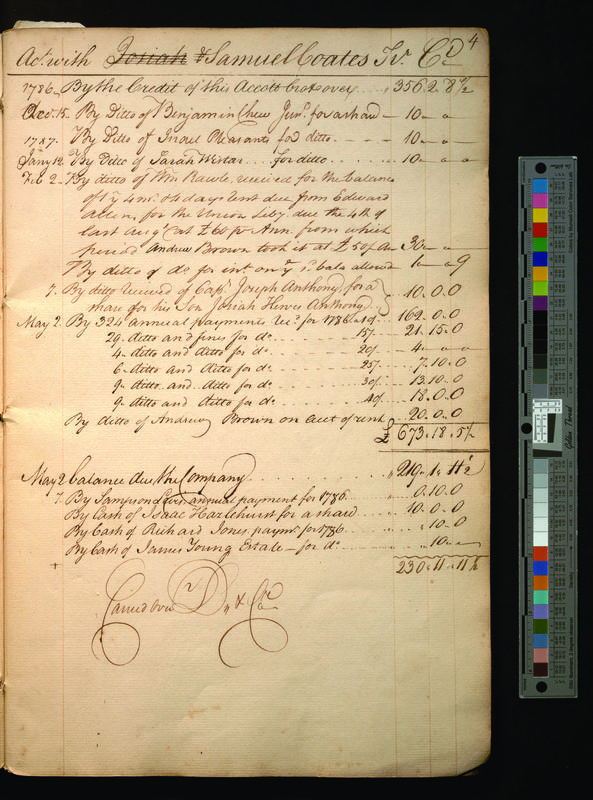 Acct. with Josiah & Samuel Coates Tr. Cr. 4
1786 By the Credit of this Accot brot over 356.2.8½
Dec. 15 By Ditto of Benjamin Chew Junr. for a share 10
1787 By Ditto of Israel Pleasants for ditto 10
Jany 12 By Ditto of Sarah Wistar for ditto 10
Feb 2 By ditto of Wm Rawle, received for the balance
of 4 mo. days rent due from Edward
for the Union Liby. due the 4th of
last Augt at £60 pr Ann. from which
period Andrew Brown took it at £50 pr An 30
By ditto of do for int on ye sd bala allowed 1 9
7. By ditto received of Capt. Joseph Anthony, for a
share for his Son Josiah Hewes Anthony 10.0.0
May 2. By 324 annual payments recd for 1786 10/. 162.0.0
29 ditto and fines for do 15/. 21.15.0
4 ditto and ditto for do 20/. 4
6 ditto and ditto for do 25/. 7.10.0
9 ditto and ditto for do 30/. 13.10.0
9 ditto and ditto for do 40/. 18.0.0
By ditto of Andrew Brown on acct of rent 20.0.0
673.18.5½
May 2 balance due the Company 219.1.11½
7. By Sampson annual payment for 1786 0.10.0
By Cash of Isaac Hazlehurst for a share 10.0.0
By Cash of Richard Jones paymt. for 1786 10.0
By Cash of James Young Estate for do 10
230.11.11½
Carried over Dr. & Cr.
Golden Thread